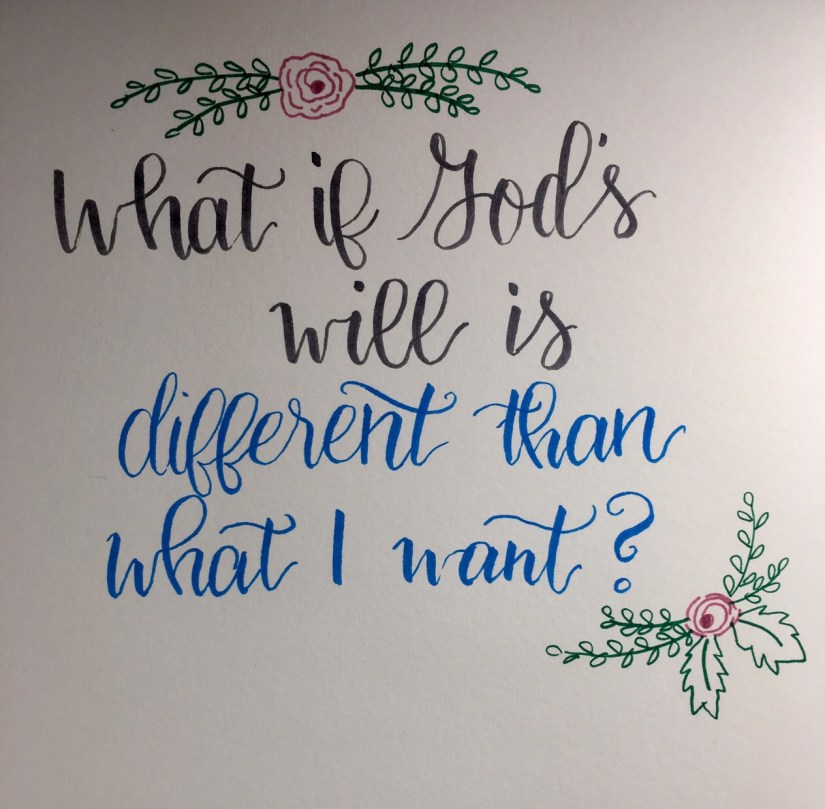 What if God's
will is
different than
what I want?